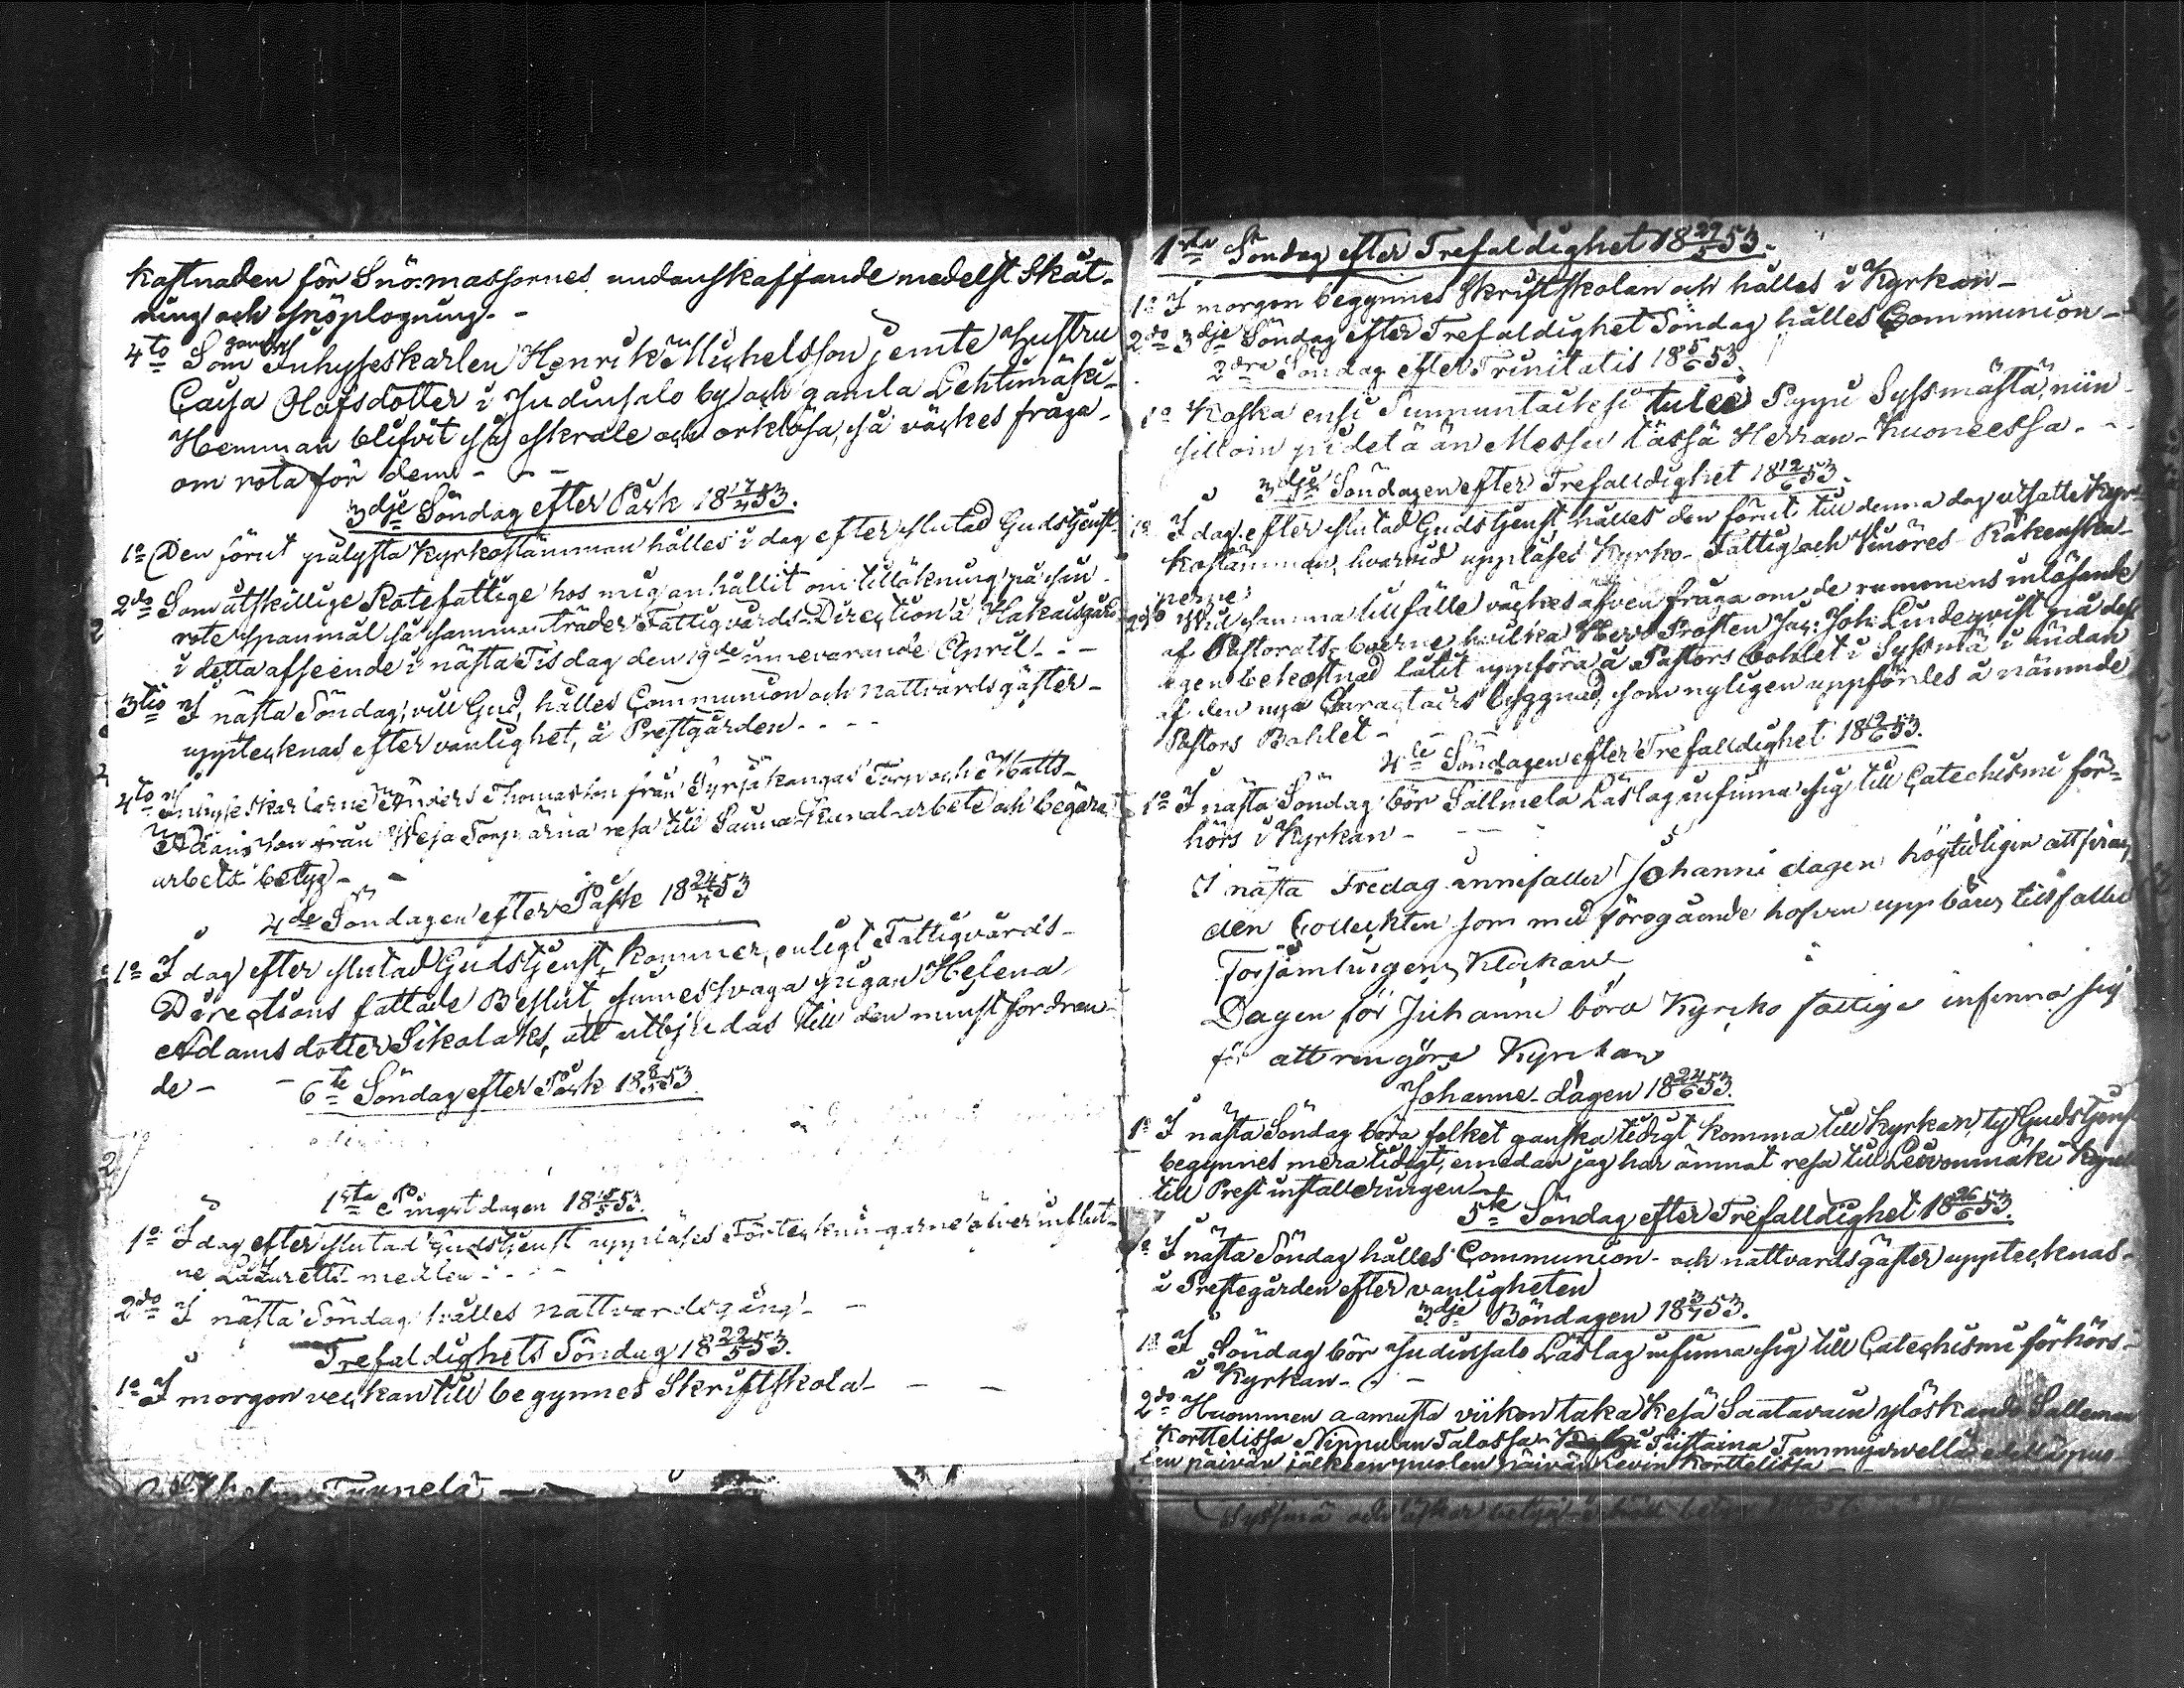 kostnaden för Snömassornes undanskaffande medelst Skått-
ning och snöplogning. -
4to Som gamla Inhyseskarlen Henrik Michelsson jemte hustru
Caisa Olofsdotter i Judinsalo by och gamla Lehtimäki
Hemman blifvit så skrale och orklösa, så väckes fråga
om rota för dem - - -
3dje Söndag efter Påsk 18 17/4 53.
1o Den förut pålysta Kyrkostämman hålles i dag efter slutad Gudstjenst.
2do Som åtskillige Rotefattige hos mig anhållit om tillökning på sin
rotespanmål så sammanträder Fattigvårds-Direction å
i detta afseende i nästa Tisdag den 19de innevarande April - -
3tio I nästa Söndag, vill Gud, hålles Communion och nattvardsgäster
upptecknas efter vanlighet, å Prestgården - - -
4to Inhyseskarlarne Anders Thomasson från Syrjäkangas Torp och Matts
Adamsson från Weja Torp ärna resa till Saima Kanal-arbete och begära
arbets betyg - -
4de Söndagen efter Påsk 18 24/4 53
1o I dag efter slutad Gudstjenst kommer, enligt Fattigvårds-
Directions fattade Beslut, sinnessvaga pigan Helena
Adamsdotter Sikalaks, att utbjudas till den minst fordran-
de - -
6te Söndag efter Påsk 18 8/5 53.
1sta Pingstdagen 18 15/5 53.
1o I dag efter slutad Gudstjenst uppläses Förteckningarne öfver influt-
ne Lazaretts-medlen - - -
2do I nästa Söndag hålles nattvardsgång - -
Trefaldighets Söndag 18 22/5 53.
1o I morgon veckan till begynnes Skriftskola - - -
1sta Söndag efter Trefaldighet 18 29/5 53.
1o I morgon begynnes Skriftskolan och hålles i Kyrkan -
2do 3dje Söndag efter Trefaldighet Söndag hålles Communion -
2dra Söndag efter Trinitatis 18 5/6 53.
1o Koska ensi Sunnuntaiksi tulee Pappi Syssmästä, niin
silloin pidetään Messu tässä Herran-huoneessa - -
3dje Söndagen efter Trefalldighet 18 12/6 53.
1o I dag efter slutad Gudstjenst hålles den förut till denna dag utsatte Kyr-
kostämman, hvarvid uppläses Kyrko- Fattig och Räkenska-
perne.
2do Vid samma tillfälle väckes äfven fråga om de rummens inlösande
af Pastorats-boerne, hvilka Herr Prosten Jac: Joh: Lindeqvist på dess
egen bekostnad låtit uppföra å Pastors bohlet i Syssmä i ändan
af den nya Caractairs byggnad, som nyligen uppfördes å nämnde
Pastors Bohlet - -
4de Söndagen efter Trefalldighet 18 19/6 53.
1o I nästa Söndag bör Sallmela Läslag infinna sig till Catechismi för-
hörs i Kyrkan -
I nästa Fredag innefaller Johanni dagen högtidligen att firas,
den Collecten som med föregående hofven uppbäres tillfaller
Församlingens Klockare
Dagen för Johanni böra Kyrcko fattige infinna sig
för att rengöra Kyrckan
Johanne-dagen 18 24/6 53.
1o I nästa Söndag böra folket ganska tidigt komma till Kyrkan, ty Gudstjenst
begynnes mera tidigt, emedan jag har ämnat resa till Leivonmäki
till Prest installeringen -
5te Söndag efter Trefalldighet 18 26/6 53.
1o I nästa Söndag hålles Communion - och nattvardsgäster upptecknas
å Prestegården efter vanligheten
3dje Böndagen 18 3/7 53.
1o I Söndag bör Judinsalo Läslag infinna sig till Catechismi förhörs
i Kyrkan - -
2do Huommen aamusta viikon taka Kesä Saatavain ylöskando Salleman
Korttelissa Nippulan Talossa Tiistaina Tammijärvellä edellä puo-
len päivän jälkeen puolen päivän Korttelissa - -